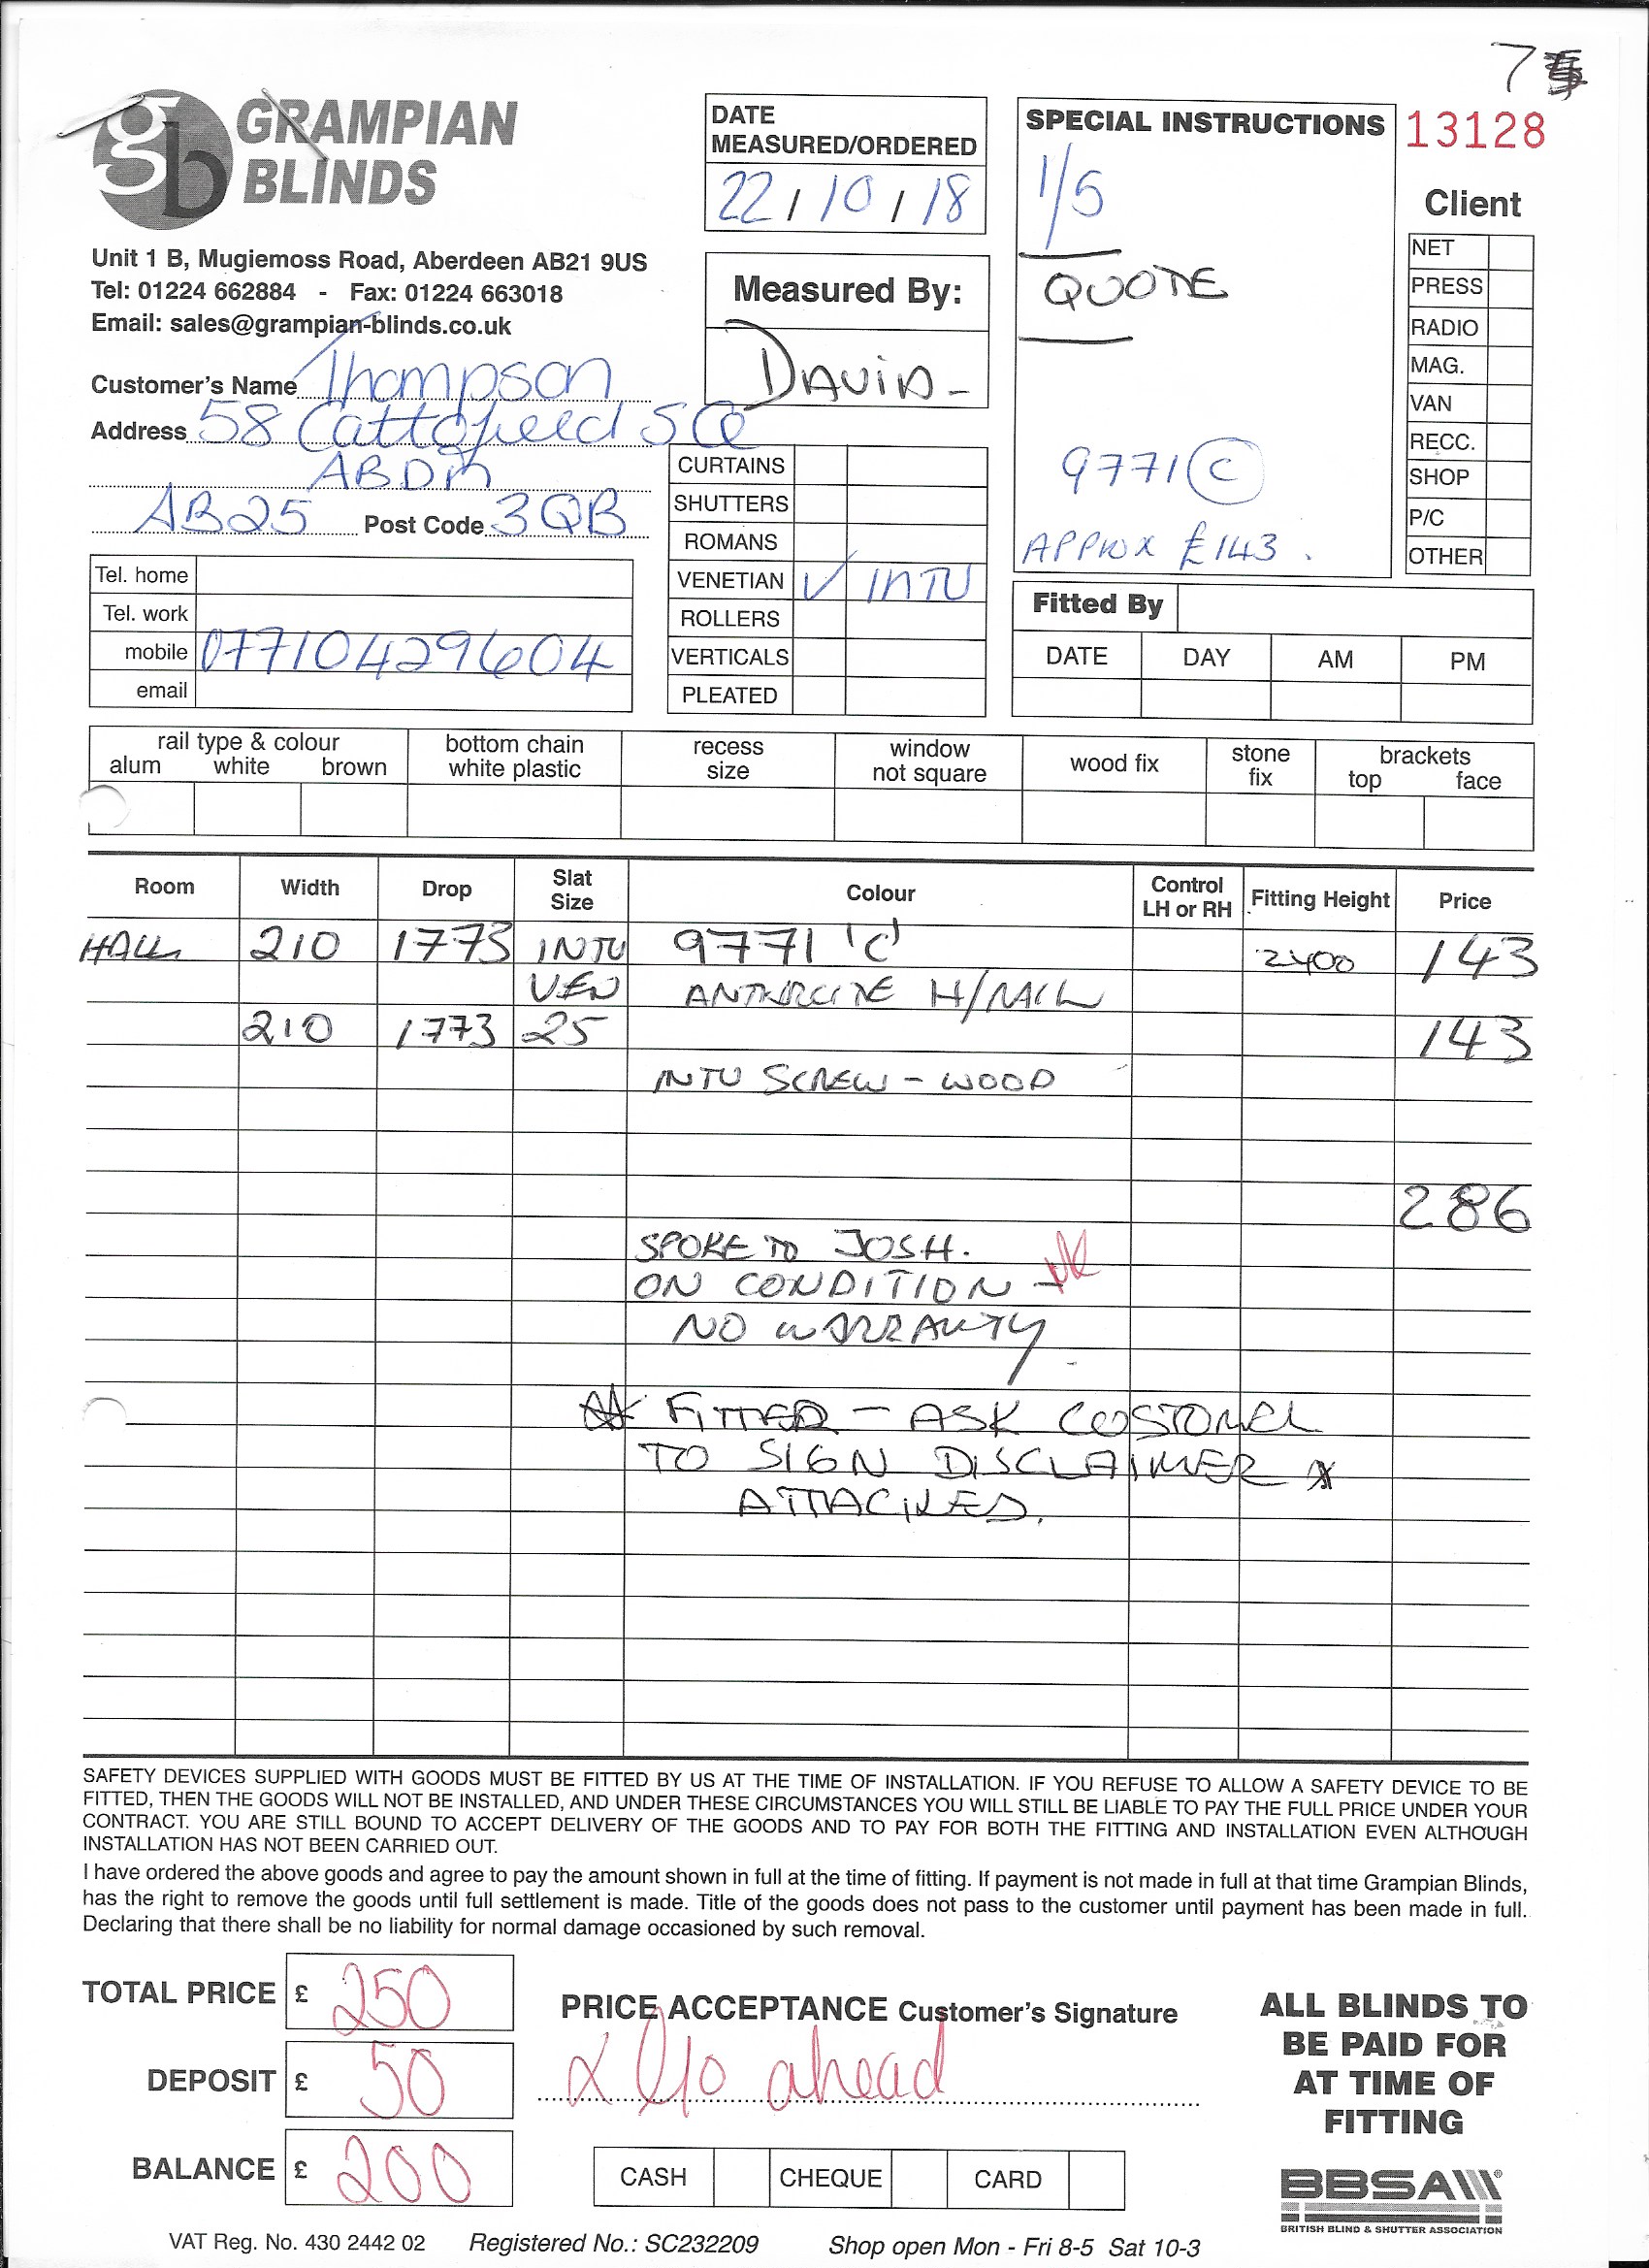 7
GRAMPIAN
BLINDS
Unit 1 B, Mugiemoss Road, Aberdeen AB21 9US
Tel: 01224 662884 - Fax: 01224 663018
Email: sales@grampian-blinds.co.uk
Customer's Name Thompson
Address 58 Cattofield SQ
ABDN
AB25 Post Code 3QB
Tel. home
Tel. work
mobile 07710429604
email
DATE
MEASURED/ORDERED
22 / 10 / 18
Measured By:
DAVID -
CURTAINS
SHUTTERS
ROMANS
VENETIAN ✓ INTU
ROLLERS
VERTICALS
PLEATED
SPECIAL INSTRUCTIONS
1/5
QUOTE
9771 C
APPROX £143.
13128
Client
NET
PRESS
RADIO
MAG.
VAN
RECC.
SHOP
P/C
OTHER
Fitted By
DATE DAY AM PM
rail type & colour
alum white brown
bottom chain
white plastic
recess
size
window
not square
wood fix
stone
fix
brackets
top face
Room Width Drop Slat Size Colour Control LH or RH Fitting Height Price
HALL 210 1773 INTU 9771 'C' 2400 143
VEN ANTHRCITE H/RAIL
210 1773 25 143
INTU SCREW - WOOD
286
SPOKE TO JOSH.
ON CONDITION -
NO WARRANTY
FITTER - ASK COSTOMER
TO SIGN DISCLAIMER
ATTACHED.
SAFETY DEVICES SUPPLIED WITH GOODS MUST BE FITTED BY US AT THE TIME OF INSTALLATION. IF YOU REFUSE TO ALLOW A SAFETY DEVICE TO BE
FITTED, THEN THE GOODS WILL NOT BE INSTALLED, AND UNDER THESE CIRCUMSTANCES YOU WILL STILL BE LIABLE TO PAY THE FULL PRICE UNDER YOUR
CONTRACT. YOU ARE STILL BOUND TO ACCEPT DELIVERY OF THE GOODS AND TO PAY FOR BOTH THE FITTING AND INSTALLATION EVEN ALTHOUGH
INSTALLATION HAS NOT BEEN CARRIED OUT.
I have ordered the above goods and agree to pay the amount shown in full at the time of fitting. If payment is not made in full at that time Grampian Blinds,
has the right to remove the goods until full settlement is made. Title of the goods does not pass to the customer until payment has been made in full.
Declaring that there shall be no liability for normal damage occasioned by such removal.
TOTAL PRICE £ 250
DEPOSIT £ 50
BALANCE £ 200
PRICE ACCEPTANCE Customer's Signature
x Go ahead
CASH CHEQUE CARD
ALL BLINDS TO
BE PAID FOR
AT TIME OF
FITTING
BBSA
BRITISH BLIND & SHUTTER ASSOCIATION
VAT Reg. No. 430 2442 02 Registered No.: SC232209 Shop open Mon - Fri 8-5 Sat 10-3